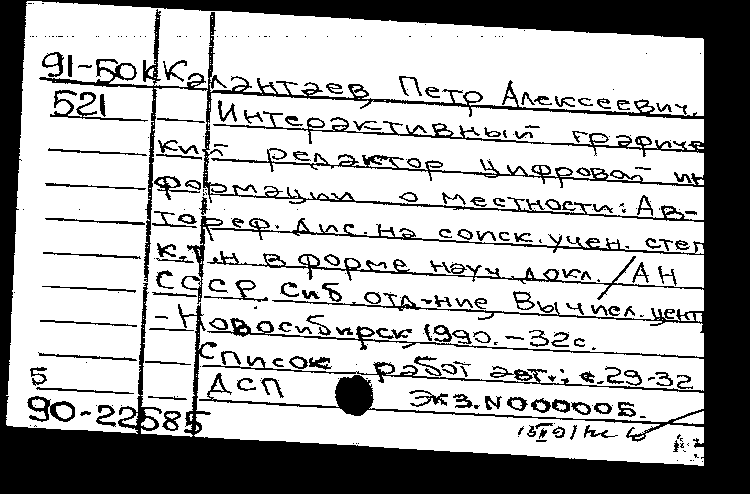 91-50к Калантаев, Петр Алексеевич.
521 Интерактивный графичес
кий редактор цифровой ин
формации о местности: Ав-
тореф. дис. на соиск. учен. степ
к.т.н. в форме науч. докл. / АН
СССР, Сиб. отд-ние, Вычисл. центр
- Новосибирск, 1990. - 32с.
Список работ авт.: с. 29-32
5 ДСП Экз. N000005.
90-22585